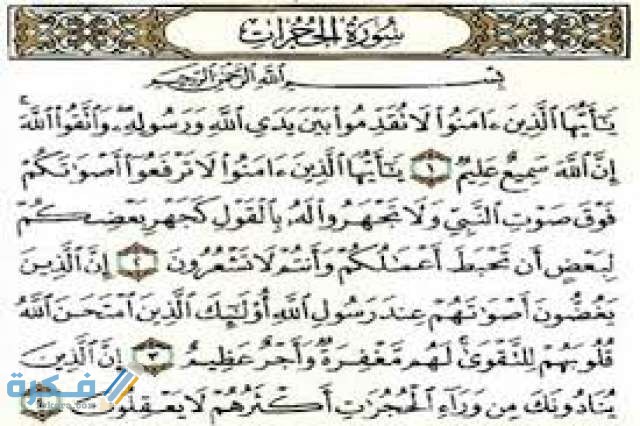 سُورَةُ الحُجُرَاتِ
بِسْمِ ٱللَّهِ ٱلرَّحْمَٰنِ ٱلرَّحِيمِ
يَٰٓأَيُّهَا ٱلَّذِينَ ءَامَنُوا۟ لَا تُقَدِّمُوا۟ بَيْنَ يَدَىِ ٱللَّهِ وَرَسُولِهِۦ ۖ وَٱتَّقُوا۟ ٱللَّهَ ۚ
إِنَّ ٱللَّهَ سَمِيعٌ عَلِيمٌ ١ يَٰٓأَيُّهَا ٱلَّذِينَ ءَامَنُوا۟ لَا تَرْفَعُوٓا۟ أَصْوَٰتَكُمْ
فَوْقَ صَوْتِ ٱلنَّبِىِّ وَلَا تَجْهَرُوا۟ لَهُۥ بِٱلْقَوْلِ كَجَهْرِ بَعْضِكُمْ
لِبَعْضٍ أَن تَحْبَطَ أَعْمَٰلُكُمْ وَأَنتُمْ لَا تَشْعُرُونَ ٢ إِنَّ ٱلَّذِينَ
يَغُضُّونَ أَصْوَٰتَهُمْ عِندَ رَسُولِ ٱللَّهِ أُو۟لَٰٓئِكَ ٱلَّذِينَ ٱمْتَحَنَ ٱللَّهُ
قُلُوبَهُمْ لِلتَّقْوَىٰ ۚ لَهُم مَّغْفِرَةٌ وَأَجْرٌ عَظِيمٌ ٣ إِنَّ ٱلَّذِينَ
يُنَادُونَكَ مِن وَرَآءِ ٱلْحُجُرَٰتِ أَكْثَرُهُمْ لَا يَعْقِلُونَ
فكرة